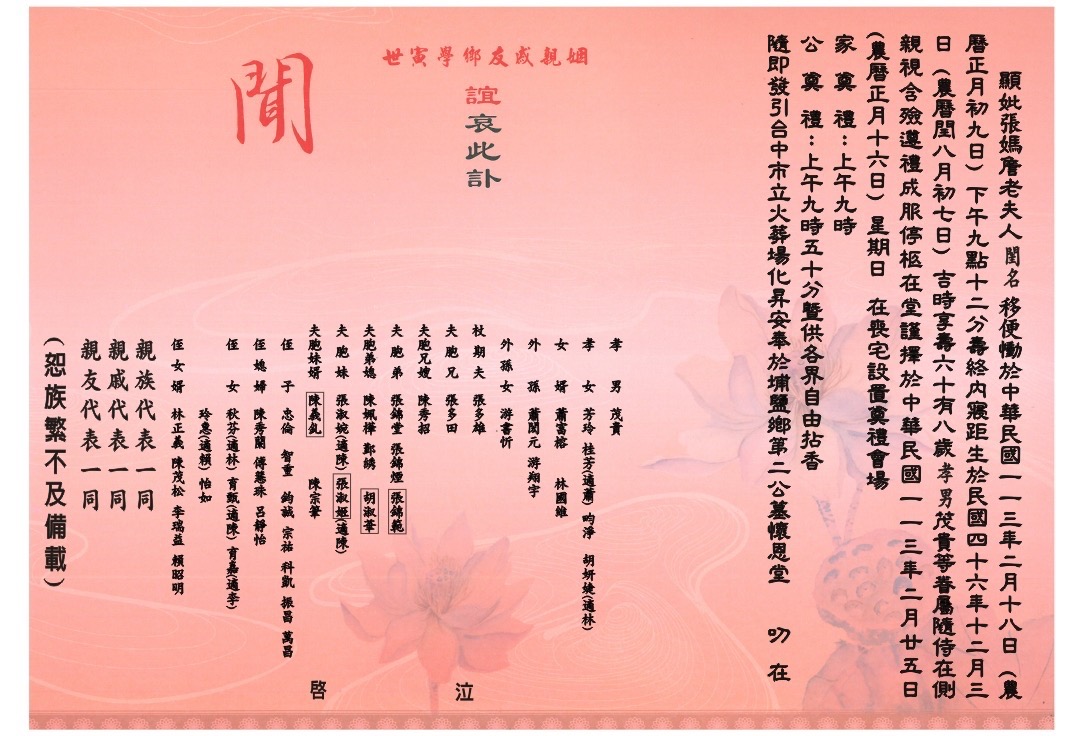 顯妣張媽詹老夫人閨名移便慟於中華民國一一三年二月十八日（農
曆正月初九日）下午九點十二分壽終內寢距生於民國四十六年十二月三
日（農曆閏八月初七日）吉時享壽六十有八歲孝男茂貴等眷屬隨侍在側
親視含殮遵禮成服停柩在堂謹擇於中華民國一一三年二月廿五日
（農曆正月十六日）星期日 在喪宅設置奠禮會場
家奠禮：上午九時
公奠禮：上午九時五十分暨供各界自由拈香
隨即發引台中市立火葬場化昇安奉於埔鹽鄉第二公墓懷恩堂 叨在
世寅學鄉友戚親姻
誼哀此訃
聞
孝男 茂貴
孝女 芳玲 桂芳(適蕭) 昀淨 胡妍婕(適林)
女婿 蕭富榕 林國雄
外孫 蕭閎元 游翔宇
外孫女 游書忻
杖期夫 張多雄
夫胞兄 張多田
夫胞兄嫂 陳秀招
夫胞弟 張錦堂 張錦煙 張錦範
夫胞弟媳 陳姵樺 鄞綉 胡淑華
夫胞妹 張淑婉(適陳) 張淑姬(適陳)
夫胞妹婿 陳義釓 陳宗肇
侄子 忠倫 智重 鉤誠 宗祐 科凱 振昌 萬昌
侄媳婦 陳秀蘭 傅慧珠 呂靜怡
侄女 秋芬(適林) 育甄(適陳) 育嘉(適李)
玲惠(適賴) 怡如
侄女婿 林正義 陳茂松 李瑞益 賴昭明
泣
啓
親族代表一同
親戚代表一同
親友代表一同
（恕族繁不及備載）